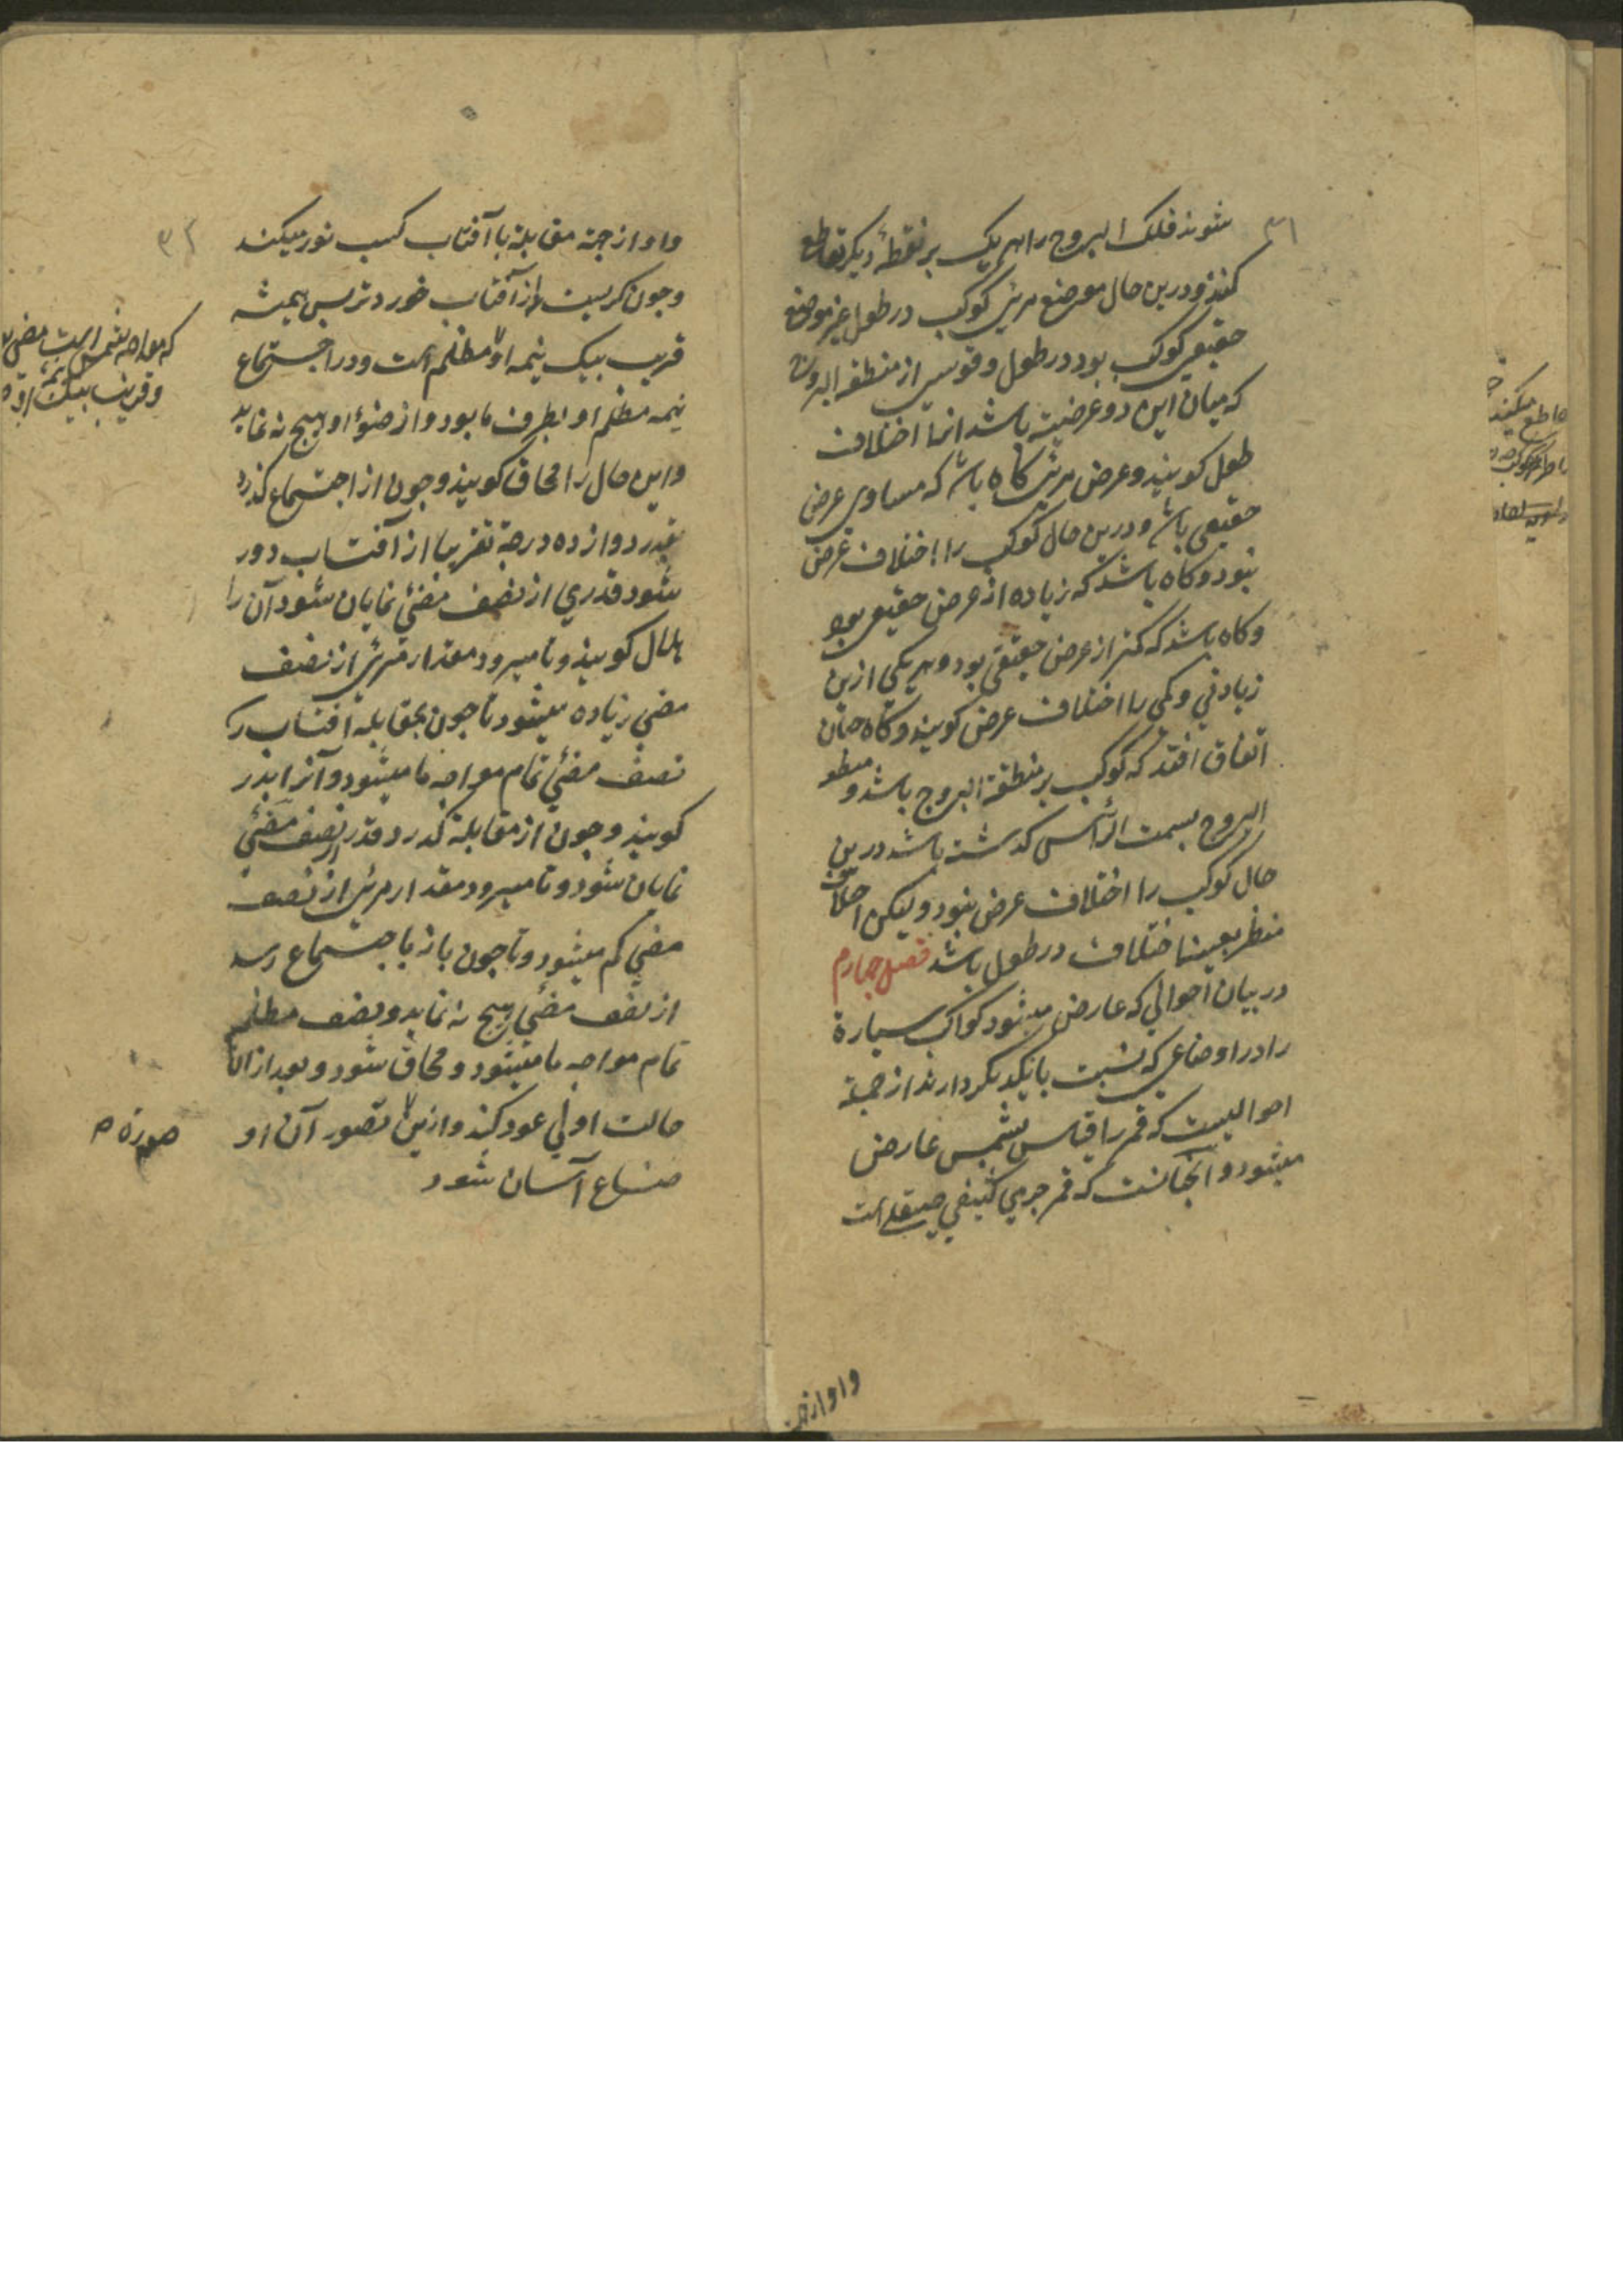 ۳۱
شوند فلک البروج را هر یک بر نقطهٔ دیکر تقاطع
کنند و درین حال موضع مرئی کوکب در طول غیر موضع
حقیقی کوکب بود در طول و قوسی از منطقه البروج
که میان این دو عرضیه باشد انرا اختلاف
طول کویند و عرض مرئی کاه باشد که مساوی عرض
حقیقی باشد و درین حال کوکب را اختلاف عرض
نبود و کاه باشد که زیاده از عرض حقیقی بود
و کاه باشد که کمتر از عرض حقیقی بود و هر یکی ازین
زیادتی و کمی را اختلاف عرض کویند و کاه چنان
اتفاق افتد که کوکب بر منطقة البروج باشد و منطقه
البروج بسمت الرأس کذشته باشد درین
حال کوکب را اختلاف عرض نبود و لیکن اختلاف
منظر بعینه اختلاف در طول باشد فصل چهارم
در بیان احوالی که عارض میشود کواکب سیارة
را در اوضاعی که نسبت بایکدیکر دارند از جمله
احوالیست که قمر را قیاس بشمس عارض
میشود و آنچنانست که قمر جرمی کثیفی صیقلی است
واو از جهة
۳۲
واو از جهة مقابلة با آفتاب کسب نور میکند
وجون کریست از آفتاب خورد تر پس همیشه
قریب بیک نیمه او مظلم است و در اجتماع
نیمه مظلم او بطرف ما بود و از ضوٴ او هیج نه نماید
و این حال را محاق کویند و جون از اجتماع کذرد
بقدر دوازده درجة تقریبا از آفتاب دور
شود قدری از نصف مضئ نمایان شود آن را
هلال کویند و تا میرود مقدار مرئی از نصف
مضی زیاده میشود تا جون بمقابله آفتاب رسد
نصف مضئ تمام مواجه ما میشود و آنرا بدر
کویند و جون از مقابلة کذرد قدر از نصف مضئ
نمایان شود و تا میرود مقدار مرئی از نصف
مضی کم میشود و تا جون باز با جتماع رسد
از نصف مضئ هیج نه نماید و نصف مظلم
تمام مواجه ما میشود و محاق شود و بعد از ان
حالت اولی عود کند و ازین تصور آن او
ضاع آسان شود
که مواجه شمس است مضی
و قریب بیک نیمه او
صورة